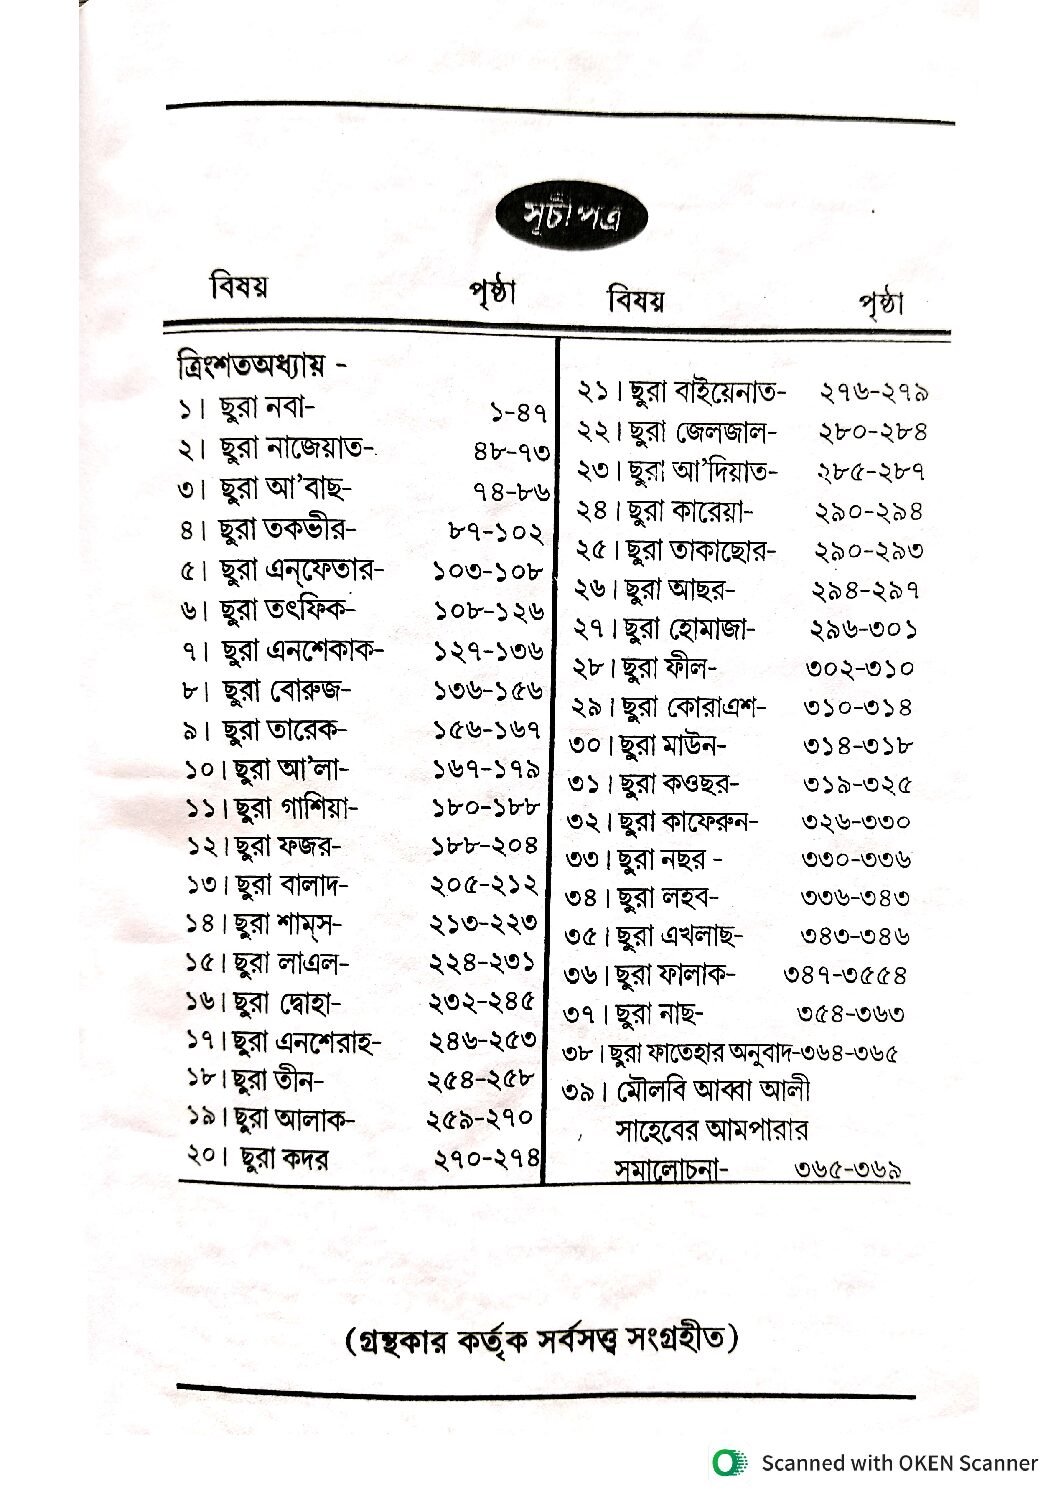 সূচীপত্র
বিষয় পৃষ্ঠা
ত্রিংশতঅধ্যায় -
১। ছুরা নবা- ১-৪৭
২। ছুরা নাজেয়াত- ৪৮-৭৩
৩। ছুরা আ'বাছ- ৭৪-৮৬
৪। ছুরা তকভীর- ৮৭-১০২
৫। ছুরা এন্‌ফেতার- ১০৩-১০৮
৬। ছুরা তৎফিক- ১০৮-১২৬
৭। ছুরা এনশেকাক- ১২৭-১৩৬
৮। ছুরা বোরুজ- ১৩৬-১৫৬
৯। ছুরা তারেক- ১৫৬-১৬৭
১০। ছুরা আ'লা- ১৬৭-১৭৯
১১। ছুরা গাশিয়া- ১৮০-১৮৮
১২। ছুরা ফজর- ১৮৮-২০৪
১৩। ছুরা বালাদ- ২০৫-২১২
১৪। ছুরা শাম্‌স- ২১৩-২২৩
১৫। ছুরা লাএল- ২২৪-২৩১
১৬। ছুরা দ্বোহা- ২৩২-২৪৫
১৭। ছুরা এনশেরাহ- ২৪৬-২৫৩
১৮। ছুরা তীন- ২৫৪-২৫৮
১৯। ছুরা আলাক- ২৫৯-২৭০
২০। ছুরা কদর ২৭০-২৭৪
বিষয় পৃষ্ঠা
২১। ছুরা বাইয়েনাত- ২৭৬-২৭৯
২২। ছুরা জেলজাল- ২৮০-২৮৪
২৩। ছুরা আ'দিয়াত- ২৮৫-২৮৭
২৪। ছুরা কারেয়া- ২৯০-২৯৪
২৫। ছুরা তাকাছোর- ২৯০-২৯৩
২৬। ছুরা আছর- ২৯৪-২৯৭
২৭। ছুরা হোমাজা- ২৯৬-৩০১
২৮। ছুরা ফীল- ৩০২-৩১০
২৯। ছুরা কোরাএশ- ৩১০-৩১৪
৩০। ছুরা মাউন- ৩১৪-৩১৮
৩১। ছুরা কওছর- ৩১৯-৩২৫
৩২। ছুরা কাফেরুন- ৩২৬-৩৩০
৩৩। ছুরা নছর - ৩৩০-৩৩৬
৩৪। ছুরা লহব- ৩৩৬-৩৪৩
৩৫। ছুরা এখলাছ- ৩৪৩-৩৪৬
৩৬। ছুরা ফালাক- ৩৪৭-৩৫৫৪
৩৭। ছুরা নাছ- ৩৫৪-৩৬৩
৩৮। ছুরা ফাতেহার অনুবাদ-৩৬৪-৩৬৫
৩৯। মৌলবি আব্বা আলী
সাহেবের আমপারার
সমালোচনা- ৩৬৫-৩৬৯
(গ্রন্থকার কর্তৃক সর্বসত্ত্ব সংগ্রহীত)
Scanned with OKEN Scanner